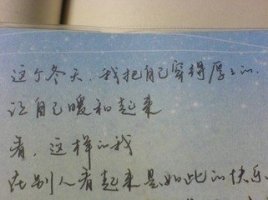 这个冬天，我把自己穿得厚厚的，
让自己暖和起来
看，这样的我
在别人看起来是如此的快乐